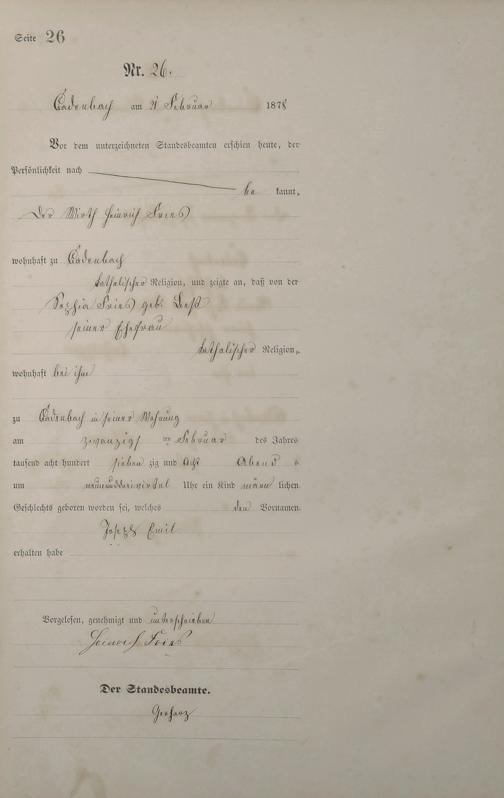 Seite 26
Nr. 26.
Cadenbach am 21 Februar 1878
Vor dem unterzeichneten Standesbeamten erschien heute, der
Persönlichkeit nach
be kannt,
Der Wirth Heinrich Fries
wohnhaft zu Cadenbach
katholischer Religion, und zeigte an, daß von der
Sophia Fries geb.
seiner Ehefrau
katholischer Religion,
wohnhaft bei ihm
zu Cadenbach in seiner Wohnung
am zwanzigsten Februar des Jahres
tausend acht hundert sieben zig und acht Abend s
um neununddreiviertel Uhr ein Kind männ lichen
Geschlechts geboren worden sei, welches den Vornamen
Joseph Emil
erhalten habe
Vorgelesen, genehmigt und unterschrieben
Heinrich Fries
Der Standesbeamte.
Gerharz